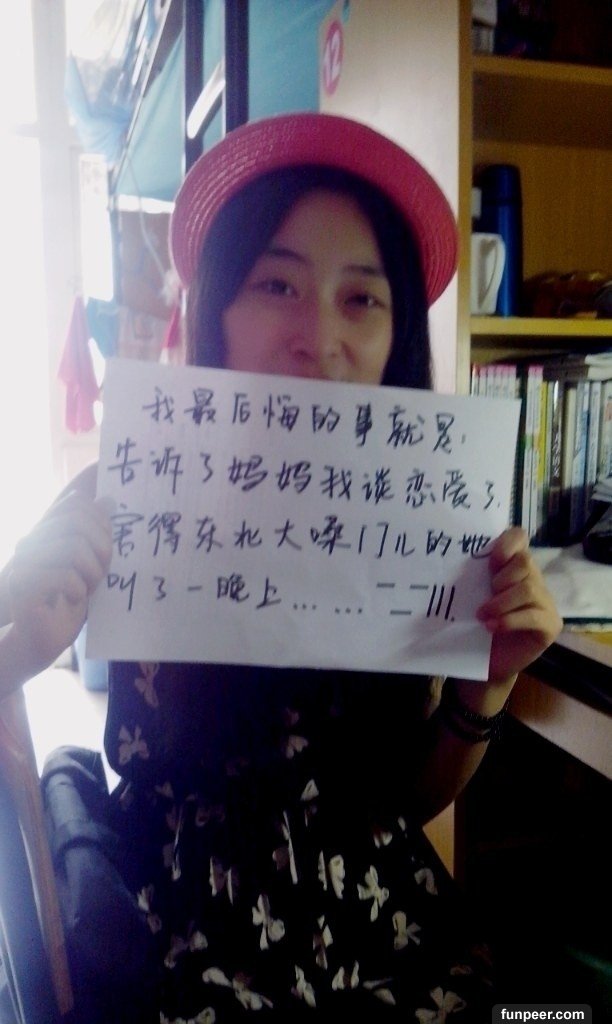 12
我最后悔的事就是,
告诉了妈妈我谈恋爱了.
害得东北大嗓门儿的她
叫了一晚上... ...
funpeer.com